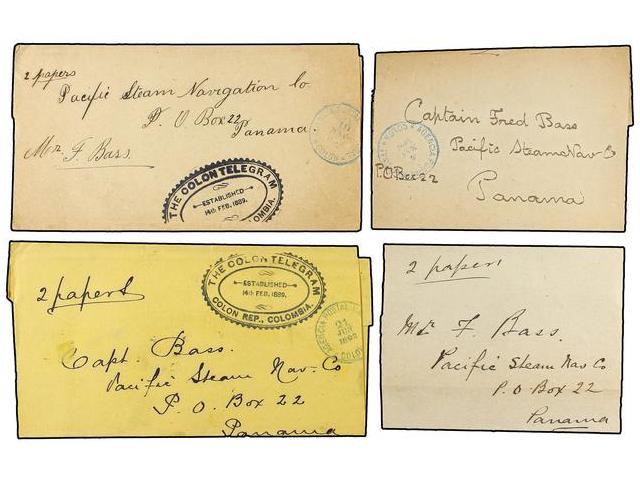 2 papers
Pacific Steam Navigation Co
P. O Box 22
Panama.
Mr. F. Bass.
THE COLON TELEGRAM
ESTABLISHED
14th FEB, 1889.
COLOMBIA.
Captain Fred Bass
Pacific Steam Nav-Co
P.O Box 22
Panama
COLON
2 papers
THE COLON TELEGRAM
ESTABLISHED
14th FEB, 1889.
COLON REP., COLOMBIA.
21
JUN
Capt. Bass.
Pacific Steam Nav-Co
P. O. Box 22
Panama
2 papers
Mr F. Bass.
Pacific Steam Nav Co
P. O Box 22
Panama